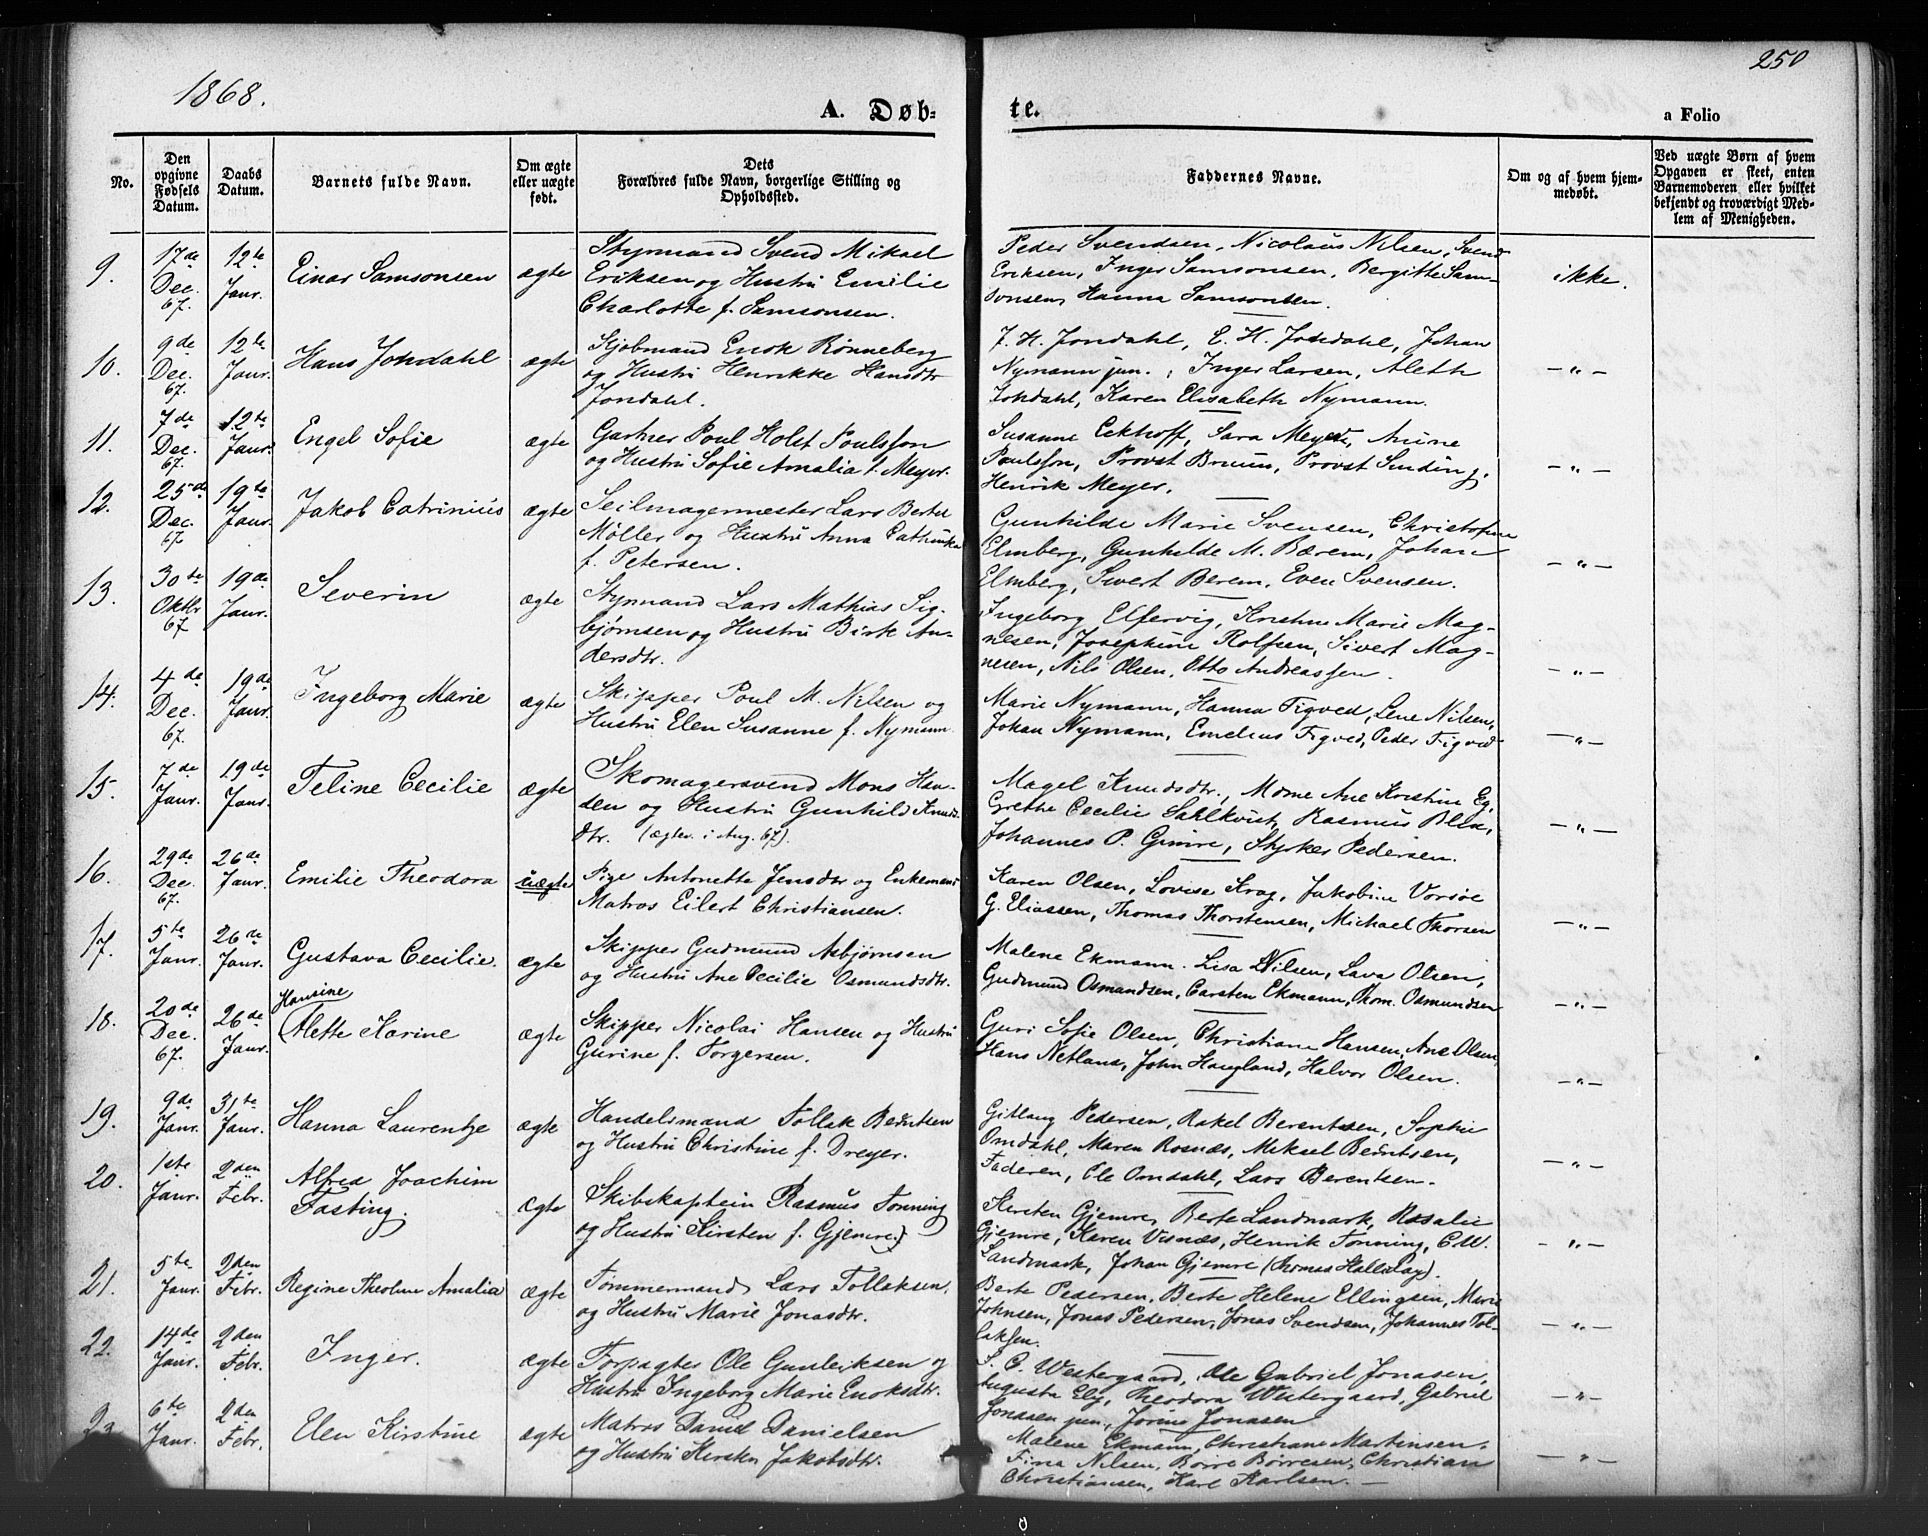 1868.
250
A. Døb-
te.
a Folio
No.
Den opgivne Fødsels Datum.
Daabs Datum.
Barnets fulde Navn.
Om ægte eller uægte født.
Dets Forældres fulde Navn, borgerlige Stilling og Opholdssted.
Faddernes Navne.
Om og af hvem hjemmedøbt.
Ved uægte Børn af hvem Opgaven er skeet, enten Barnemoderen eller hvilket bekjendt og troværdigt Medlem af Menigheden.
9.
17de Dec. 67.
12te Janr.
Einar Samsonsen
ægte
Styrmand Svend Mikael
Eriksen og Hustru Emilie
Charlotte f. Samsonsen.
Peder Svendsen, Nicolaus Nilsen, Svend
Eriksen, Inger Samsonsen, Bergitte Sam-
sonsen, Hanna Samsonsen.
ikke.
10.
9de Dec. 67.
12te Janr.
Hans Jondahl
ægte
Kjøbmand Enok Rønneberg
og Hustru Henrikke Hansdtr
Jondahl.
J. H. Jondahl, E. H. Jondahl, Johan
Nymann jun., Inger Larsen, Aleth
Jondahl, Karen Elisabeth Nymann.
— " —
11.
7de Dec. 67.
12te Janr.
Engel Sofie
ægte
Gartner Poul Holst Poulsson
og Hustru Sofie Amalia f. Meyer.
Susanne Eckhoff, Sara Meyer, Anine
Poulsson, Provst Bruun, Provst Sinding,
Henrik Meyer.
— " —
12.
25de Dec. 67
19te Janr.
Jakob Catrinius
ægte
Seilmagermester Lars Bertel
Møller og Hustru Anna Cathinka
f. Petersen.
Gunhilde Marie Svensen, Christofine
Elmberg, Gunhilde M. Bærem, Johan
Elmberg, Sivert Berem, Even Svensen.
— " —
13.
30te Oktbr 67
19de Janr.
Severin
ægte
Styrmand Lars Mathias Sig-
bjørnsen og Hustru Birte An-
dersdtr.
Ingeborg Elfervig, Kristine Marie Mag-
nesen, Josephine Rolfsen, Sivert Mag-
nesen, Nils Olsen, Otto Andreassen.
— " —
14.
4de Dec. 67.
19de Janr.
Ingeborg Marie
ægte
Skipper Poul M. Nilsen og
Hustru Elen Susanne f. Nymann.
Marie Nymann, Hanna Figved, Lene Nilsen,
Johan Nymann, Emelius Figved, Peder Figved
— " —
15.
7de Janr.
19de Janr.
Feline Cecilie
ægte
Skomagersvend Mons Han-
sen og Hustru Gunhild Knuds-
dtr. (ægtev. i Aug. 67).
Magel Knudsdtr., Mome Ane Kirstine Eg,
Grethe Cecilie Sahlkvist, Rasmus Blix,
Johannes P. Gimre, Styrker Pedersen.
— " —
16.
29de Dec. 67.
26de Janr.
Emilie Theodora
uægte
Pige Antonette Jensdtr og Enkemand
Matros Eilert Christiansen.
Karen Olsen, Lovise Krag, Jakobine Vorsøe
G. Eliassen, Thomas Thorstensen, Michael Thorsen
— " —
17.
5te Janr.
26de Janr.
Gustava Cecilie.
ægte
Skipper Gudmund Asbjørnsen
og Hustru Ane Cecilie Osmundsdtr.
Malene Ekmann. Lisa Nilsen, Lava Olsen,
Gudmund Osmandsen, Carsten Ekmann, Thom. Osmundsen
— " —
18.
20de Dec. 67.
26de Janr.
Hansine
Alette Karine
ægte
Skipper Nicolai Hansen og Hustru
Gurine f. Torgersen.
Guri Sofie Olsen, Christiane Hansen, Ane Olsen,
Hans Netland, John Haugland, Halvor Olsen.
— " —
19.
9de Janr.
31te Janr.
Hanna Laurentze
ægte
Handelsmand Tollak Berntsen
og Hustru Christine f. Dreyer.
Gitlaug Pedersen, Rakel Berentsen, Sophie
Omdahl, Maren Rosnæs, Mikael Berntsen,
Faderen, Ole Omdahl, Lars Berentsen.
— " —
20.
1ste Janr.
2den Febr.
Alfred Joachim
Fasting.
Ægte
Skibskaptein Rasmus Tonning
og Hustru Kirsten f. Gjemre.
Kirsten Gjemre, Berte Landmark, Rosalie
Gjemre, Karen Visnæs, Henrik Tonning, C. W.
Landmark, Johan Gjemre (Thomas Halleläy).
— " —
21.
5te Janr.
2den Febr.
Regine Theoline Amalia
ægte
Tømmermand Lars Tollaksen,
og Hustru Marie Jonasdtr.
Berte Pedersen, Berte Helene Ellingsen, Marie
Johnsen, Jonas Pedersen, Jonas Svendsen, Johannes Tol-
laksen.
— " —
22.
14de Janr.
2den Febr.
Inger.
ægte
Forpagter Ole Gunleiksen og
Hustru Ingeborg Marie Enoksdtr.
S. C. Westergaard, Ole Gabriel Jonasen,
Augusta Ely, Theodora Westergaard, Gabriel
Jonassen jun., Jørine Jonassen
— " —
23.
6te Janr.
2den Febr.
Elen Kirstine
ægte
Matros David Danielsen
og Hustru Kirsten Jakobsdtr.
Malene Ekmann, Christiane Martinsen,
Fina Nilsen, Børre Børresen, Christian
Christiansen, Karl Karlsen. —
— " —